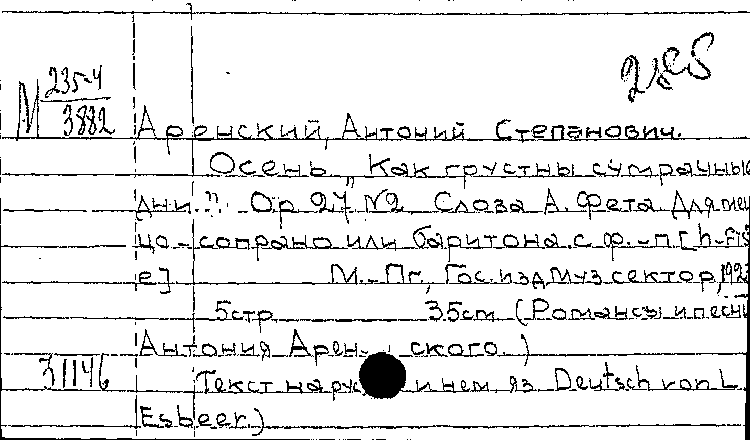 М 235-4
3882
Аренский, Антоний Степанович.
Осень „Как грустны сумрачные
дни". Ор 27 №2 Слова А. Фета. Для мец
цо-сопрано или баритона с ф.-п [h-fis
е] М.-Пг., Гос. изд Муз сектор, 192
5стр 35см (Романсы и песни
Антония Арен- ского.)
31146
Текст на рус. и нем яз. Deutsch von L.
Esbeer.)